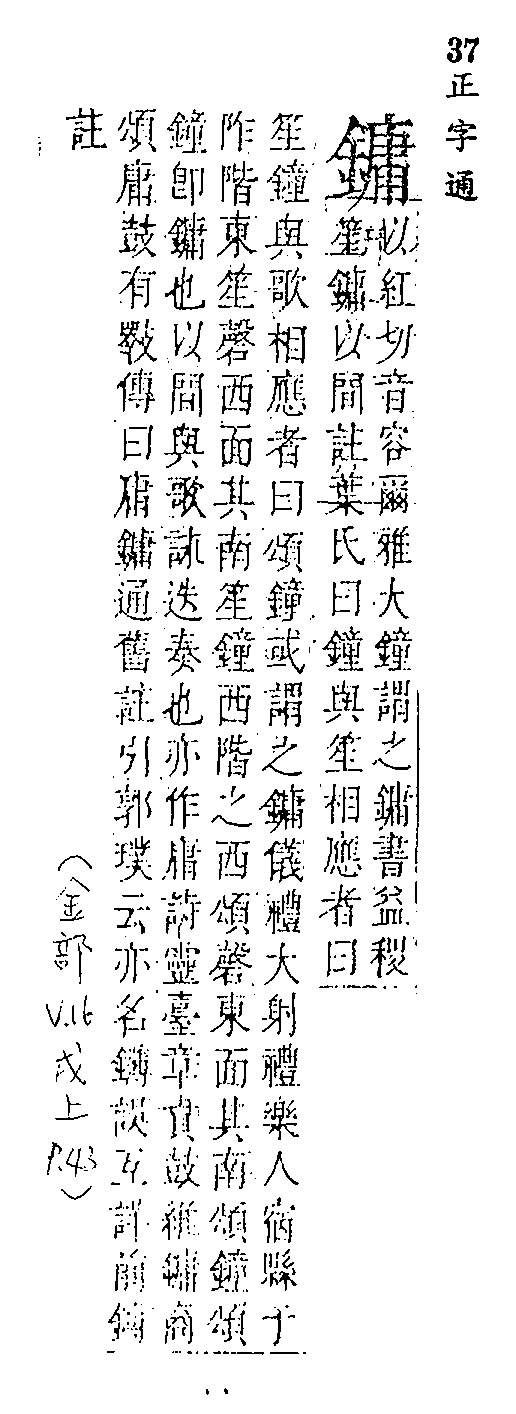 37 正字通
鏞
以紅切音容爾雅大鐘謂之鏞書益稷
笙鏞以間註葉氏曰鐘與笙相應者曰
笙鐘與歌相應者曰頌鐘或謂之鏞儀禮大射禮樂人宿縣于
阼階東笙磬西面其南笙鐘西階之西頌磬東面其南頌鐘頌
鐘卽鏞也以間與歌詠迭奏也亦作庸詩靈臺章賁鼓維鏞商
頌庸鼓有斁傳曰庸鏞通舊註引郭璞云亦名鏄誤互詳前鏄
註
(金部 V.16 戌上 P.43)